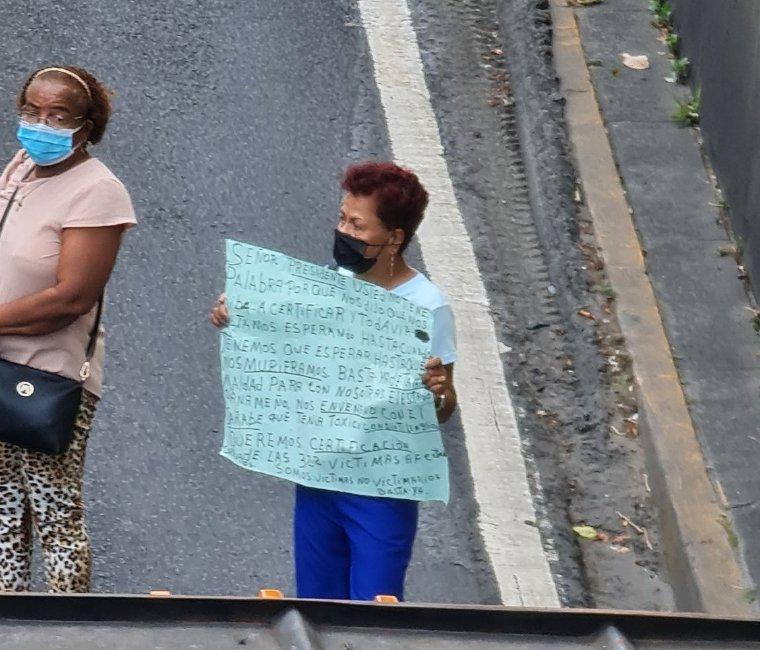 SEÑOR PRESIDENTE USTED NO TIENE
PALABRA PORQUE NOS DIJO QUE NOS
IBA A CERTIFICAR Y TODAVIA
ESTAMOS ESPERANDO HASTA CUANDO
TENEMOS QUE ESPERAR HASTA QUE
NOS MURIERAMOS BASTA YA DE
MALDAD PARA CON NOSOTROS EL ESTADO
PANAMEÑO NOS ENVENENO CON EL
JARABE QUE TENIA TOXICO
QUEREMOS CERTIFICACION
DE LAS 322 VICTIMAS AFECTADAS
SOMOS VICTIMAS NO VICTIMARIOS
BASTA YA